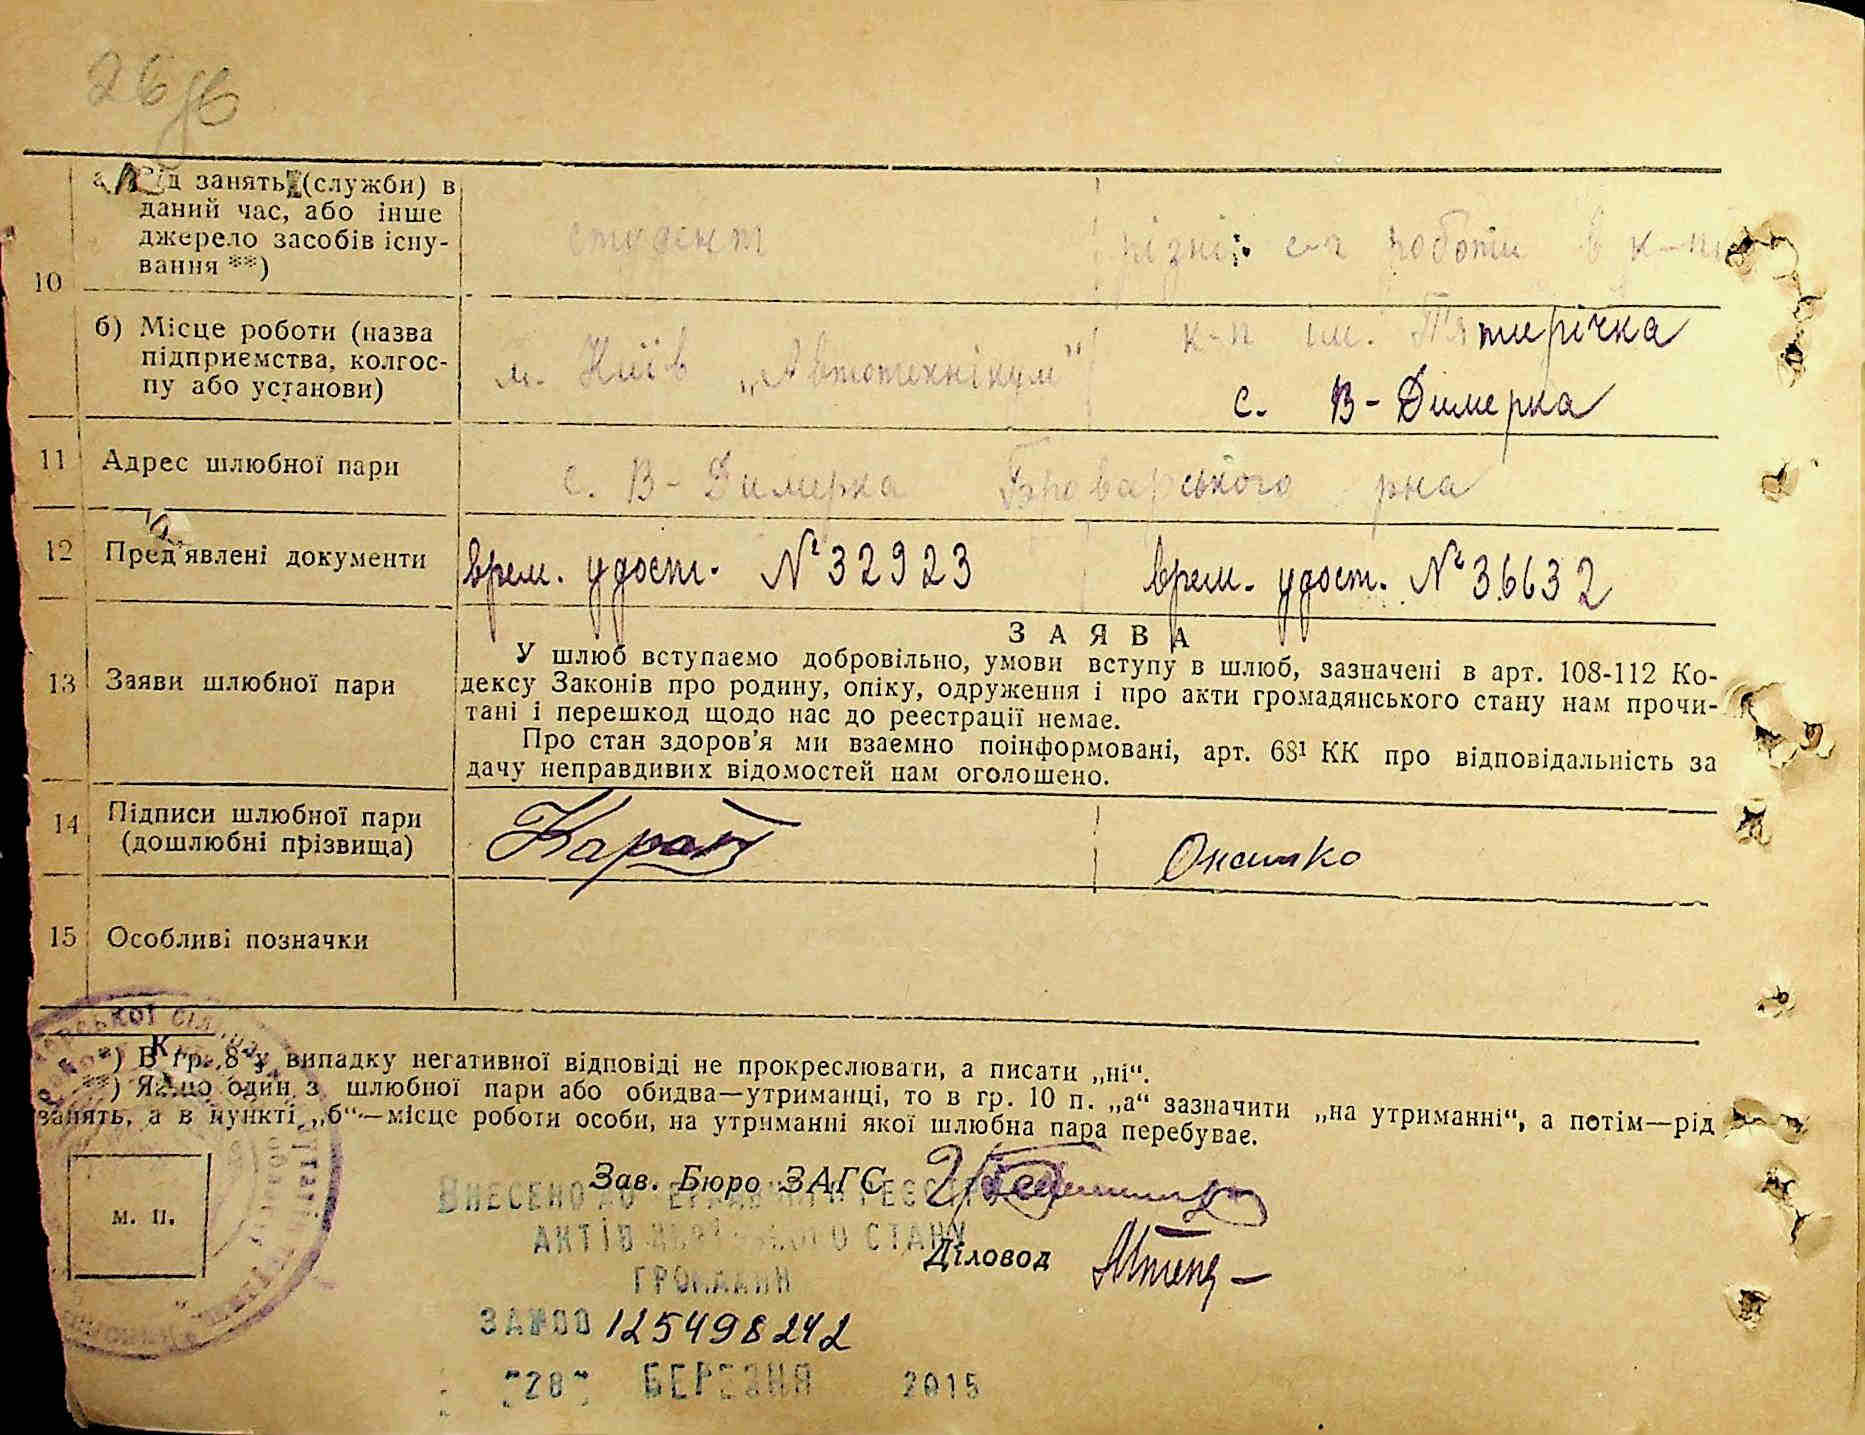 26
а) Рід занять (служби) в
даний час, або інше
джерело засобів існу-
вання **)
студент
різні с-г роботи в к-пі
10
б) Місце роботи (назва
підприємства, колгос-
пу або установи)
м. Київ „Автотехнікум"
к-п ім. П'ятирічка
с. В-Димерка
11 Адрес шлюбної пари
с. В-Димерка Броварського р-на
12 Пред'явлені документи
врем. удост. № 32923
врем. удост. № 36632
13 Заяви шлюбної пари
ЗАЯВА
У шлюб вступаємо добровільно, умови вступу в шлюб, зазначені в арт. 108-112 Ко-
дексу Законів про родину, опіку, одруження і про акти громадянського стану нам прочи-
тані і перешкод щодо нас до реєстрації немає.
Про стан здоров'я ми взаємно поінформовані, арт. 68¹ КК про відповідальність за
дачу неправдивих відомостей нам оголошено.
14 Підписи шлюбної пари
(дошлюбні прізвища)
Онашко
15 Особливі позначки
*) В гр. 8 у випадку негативної відповіді не прокреслювати, а писати „ні".
**) Якщо один з шлюбної пари або обидва—утриманці, то в гр. 10 п. „а" зазначити „на утриманні", а потім—рід
занять, а в пункті „б"—місце роботи особи, на утриманні якої шлюбна пара перебуває.
Зав. Бюро ЗАГС
м. п.
Внесено до Державного реєстру
актів цивільного стану
громадян
Діловод
за №00 125498242
"28" БЕРЕЗНЯ 2015